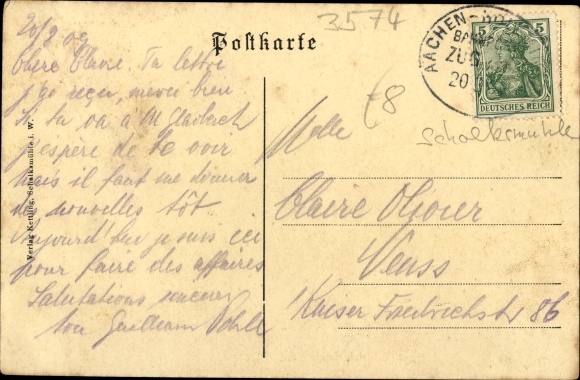 3574
Postkarte
AACHEN
BAHNPOST
ZUG
20
5 5
DEUTSCHES REICH
€8
Schalksmühle
20/9 09
Chère Claire. Ta lettre
j'ai reçu, merci bien
Si tu va à M Gladbach
j'espère de te voir
mais il faut me donner
des nouvelles tôt.
Aujourd'hui je suis ici
pour faire des affaires
Salutations sincères
ton Guilleaum
Verlag Kettling, Schalksmühle i. W.
Melle
Claire Olivier
Neuss
Kaiser Friedrichstr 86